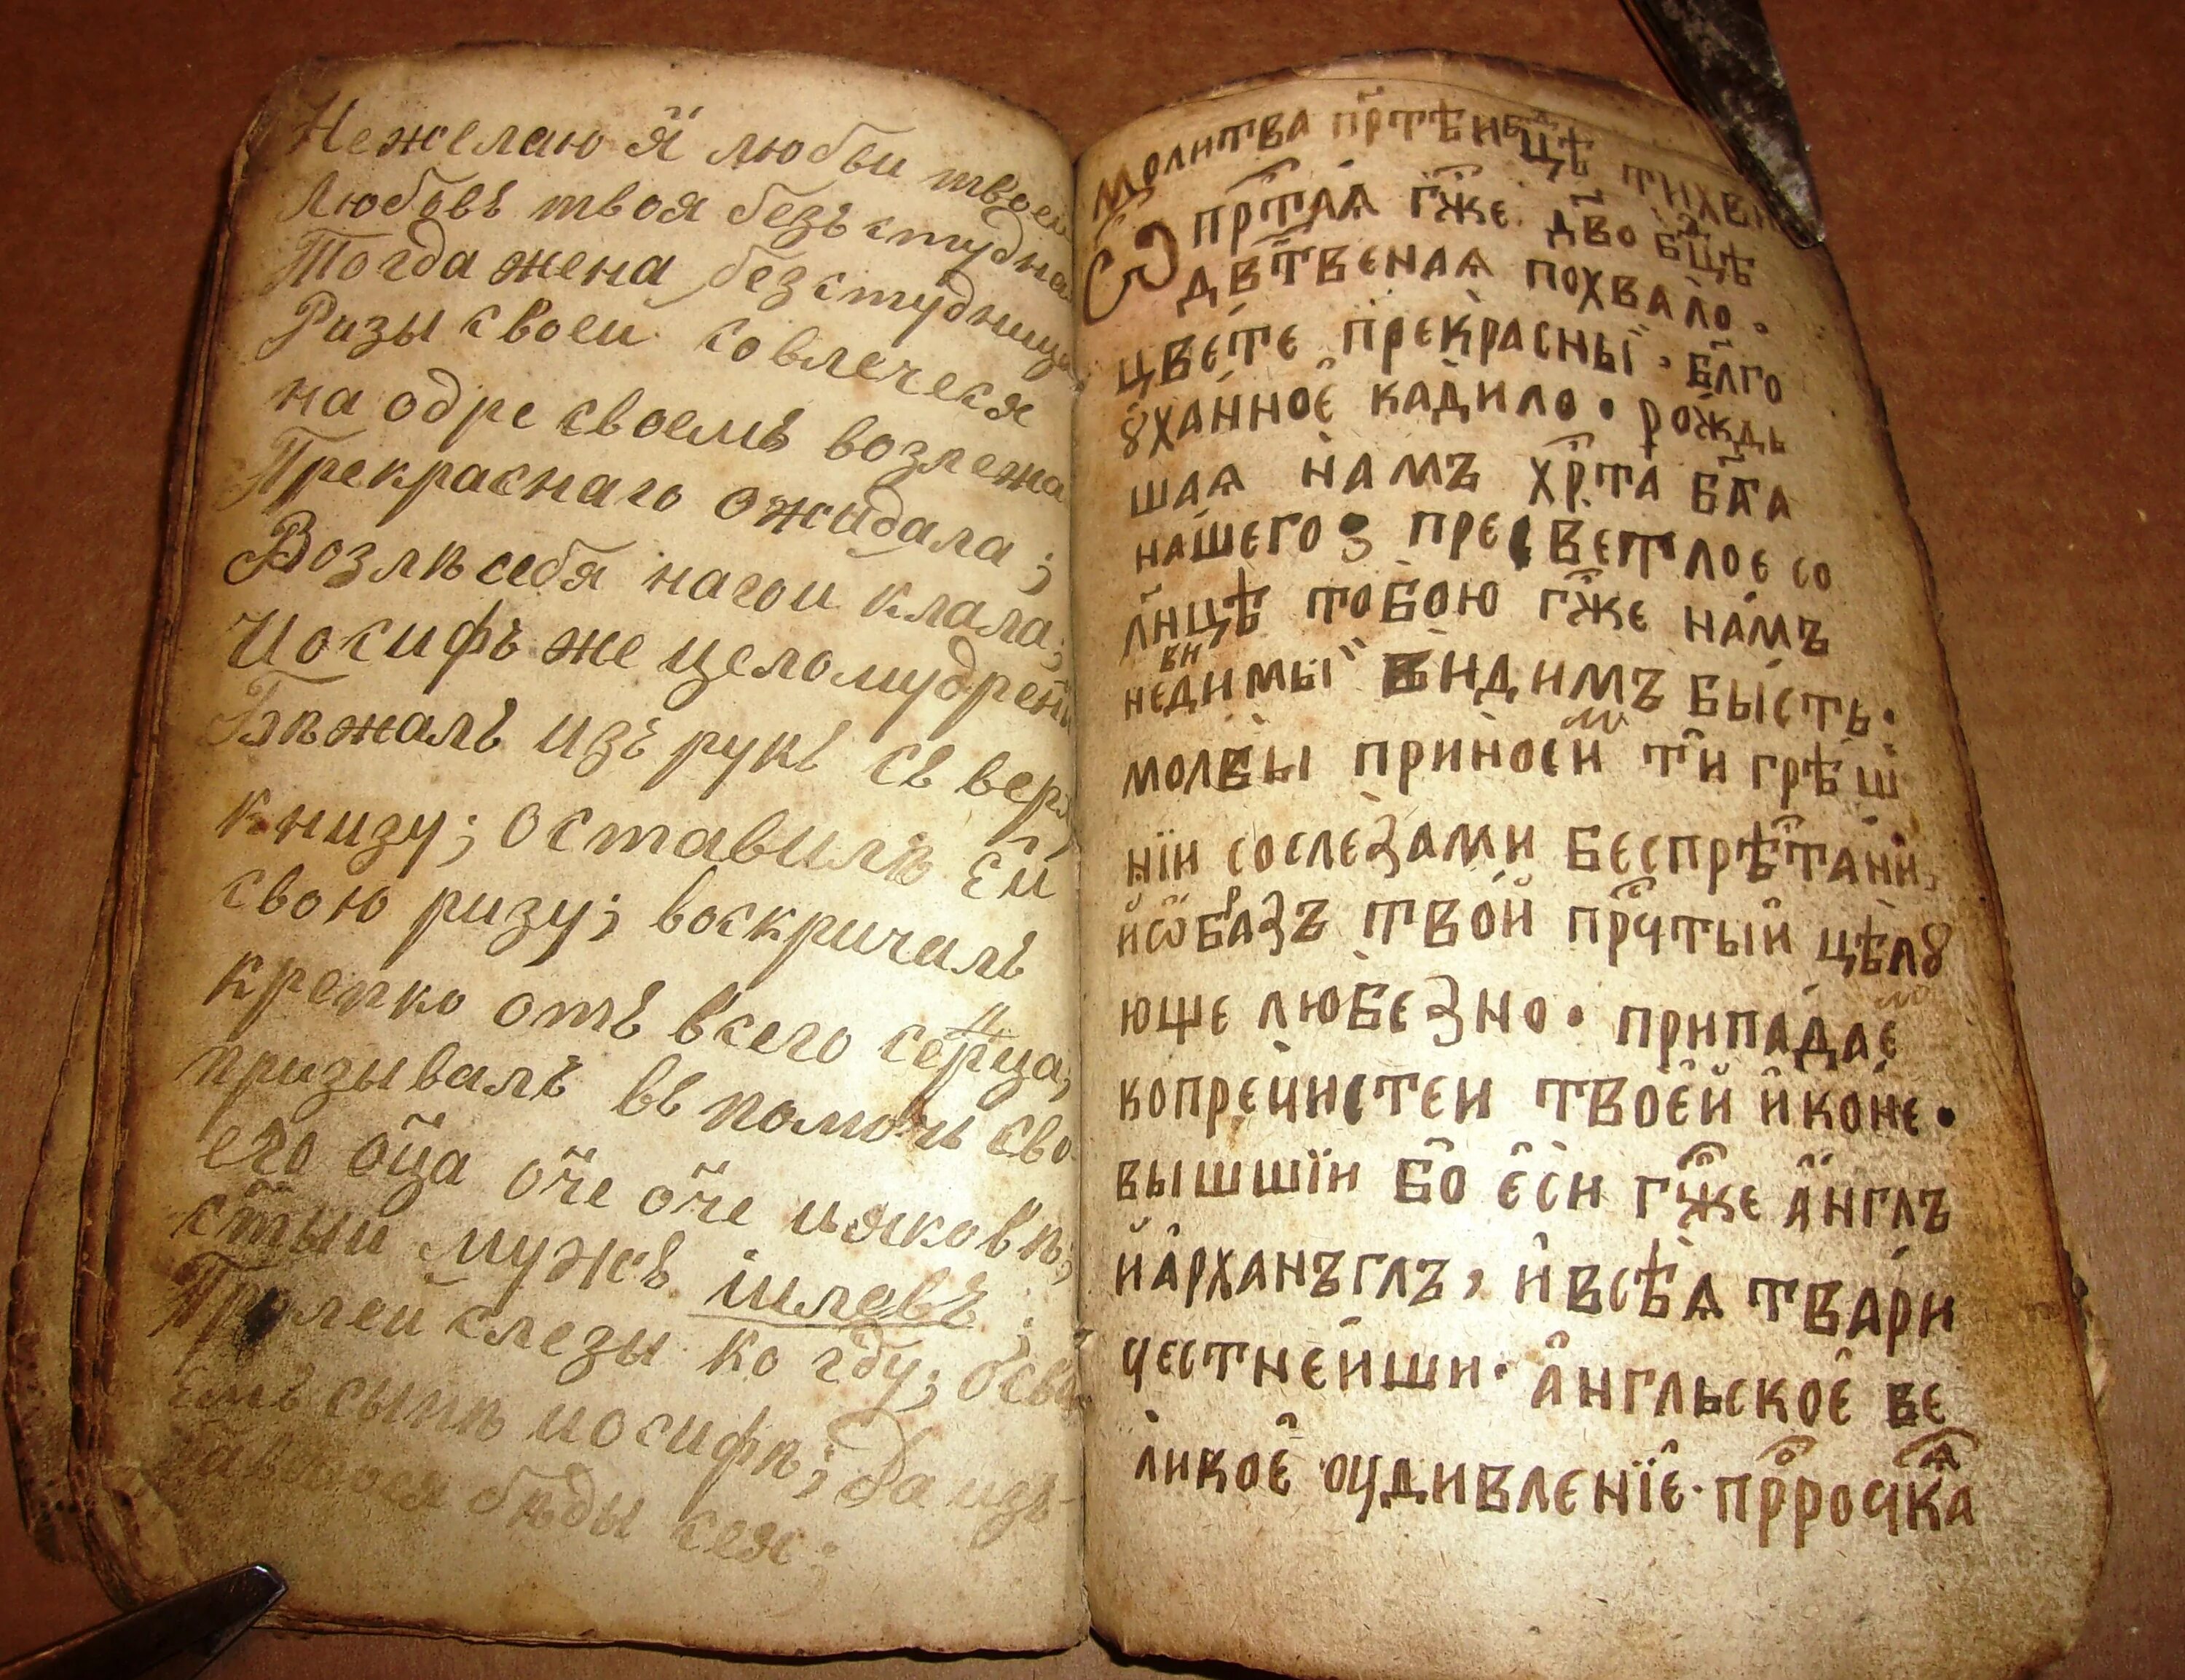 Не желаю я̈ любви твоеи
Любовь твоя безъ студна
Тогда жена безстудница
Ризы своеи совлечеся
на одре своемъ возлежа
Прекраснаго ожидала ;
Возлѣ себя нагои клала;
Иосифъ же целомудрен
Бѣжалъ изъ рукъ съ вер
книзу; оставилъ ей
свою ризу; воскричалъ
крепко отъ всего серца;
призывалъ въ помочь сво
его оц҃а оч҃е оч҃е ияковѣ;
ст҃ыи мужъ іилевъ ;
Пролеи слезы ко гд҃у; о сво
емъ сынѣ иосифѣ; да изъ-
бѣды сея;
Молитва пр҃тѣи бц҃ѣ тихви
Ѽ пр҃тая гж҃е. дв҃о бц҃ѣ
дв҃твеная похвало.
цвете прекрасныї. бл҃го
ꙋханное кадило. рождь
шая намъ хр҃та бг҃а
нашего пресветлое со
лнцѣ тобою гж҃е намъ
невидимыї видимъ бысть.
молбы приносим ти грѣш
нїи сослезами беспрѣтани,
и ѡбразъ твои пр҃чтыи цѣлꙋ
юще любезно. припадаем
копречистеи твоей иконе.
вышшїи бо еси гж҃е англъ
и арханъглъ, и всѣя твари
честнеиши. англьское ве
ликое оудивленїе. пр҃рочка